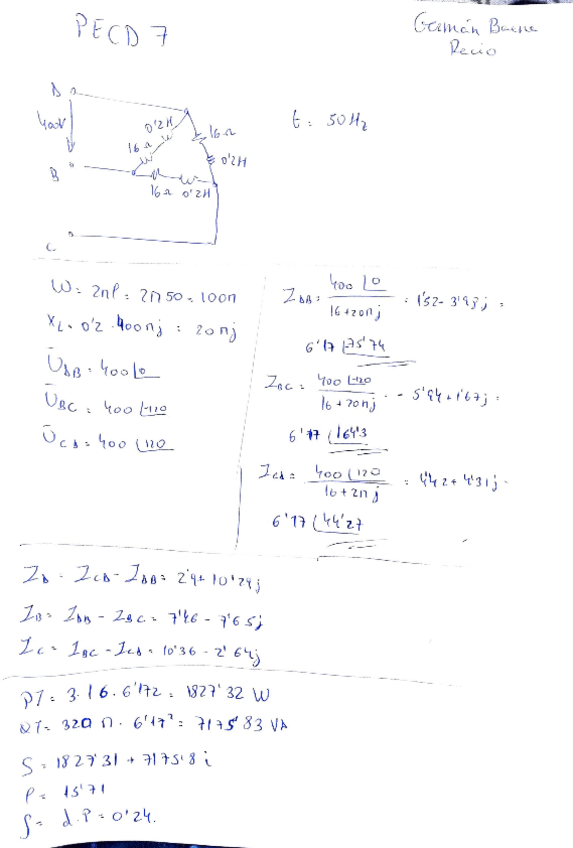 PECD 7
Germán Baena
Recio
A
400V
B
C
0'2H
16Ω
16Ω
0'2H
16Ω 0'2H
f: 50Hz
W = 2πf = 2π50 = 100π
XL = 0'2 · 100πj = 20πj
UAB = 400∠0
UBC = 400∠-120
UCA = 400∠120
IAB = 400∠0 / 16+20πj = 1'52 - 3'98j =
6'17∠-75'74
IBC = 400∠-120 / 16+20πj = -5'94 + 1'67j =
6'17∠164'3
ICA = 400∠120 / 16+2πj = 4'42 + 4'31j =
6'17∠44'27
IA = ICA - IAB = 2'9 + 10'29j
IB = IAB - IBC = 7'46 - 7'65j
IC = IBC - ICA = 10'36 - 2'64j
PT = 3·16·6'17² = 1827'32 W
QT = 3·20π·6'17² = 7175'83 VA
S = 1827'31 + 7175'8i
P = 15'71
f = d.P = 0'24.